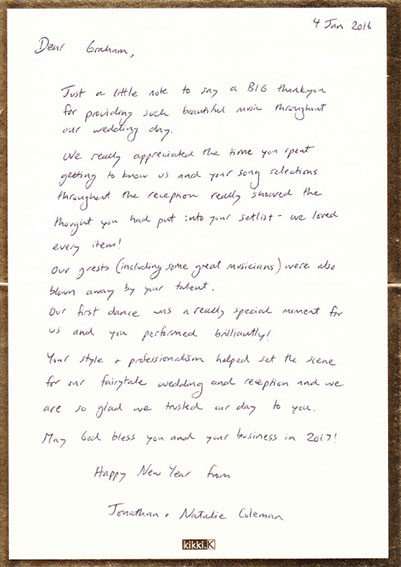 4 Jan 2016
Dear Graham,
Just a little note to say a BIG thankyou
for providing such beautiful music throughout
our wedding day.
We really appreciated the time you spent
getting to know us and your song selections
throughout the reception really showed the
thought you had put into your setlist - we loved
every item!
Our guests (including some great musicians) were also
blown away by your talent.
Our first dance was a really special moment for
us and you performed brilliantly!
Your style + professionalism helped set the scene
for our fairytale wedding and reception and we
are so glad we trusted our day to you.
May God bless you and your business in 2017!
Happy New Year from
Jonathan + Natalie Coleman
kikki.K